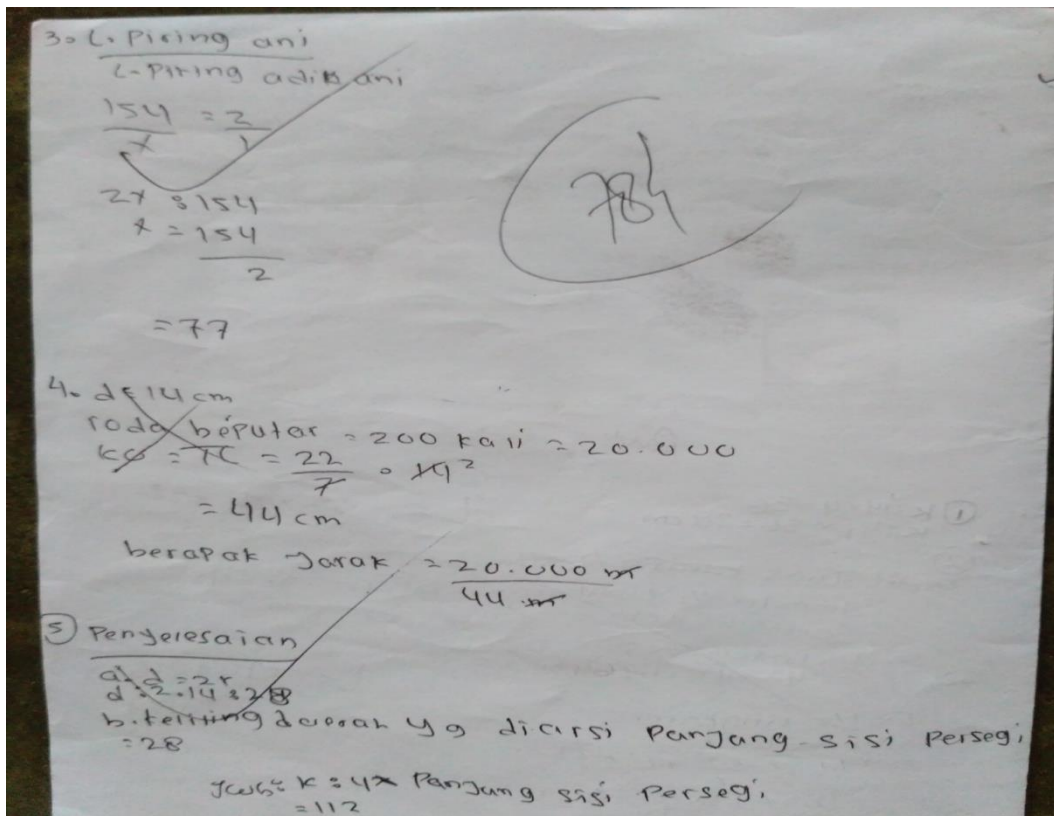 3. L. Piring ani
L. Piring adik ani
154 = 2
x 1
2x = 154
x = 154
2
= 77
784
4. d = 14 cm
roda beputar = 200 kali = 20.000
= 22 . 14 2
7
= 44 cm
berapak Jarak = 20.000 m
44 m
5 Penyelesaian
a. d = 2r
d = 2.14 = 28
b. keliling daerah yg diarsi Panjang sisi Persegi
= 28
Jwb = K = 4x Panjang sisi Persegi
= 112